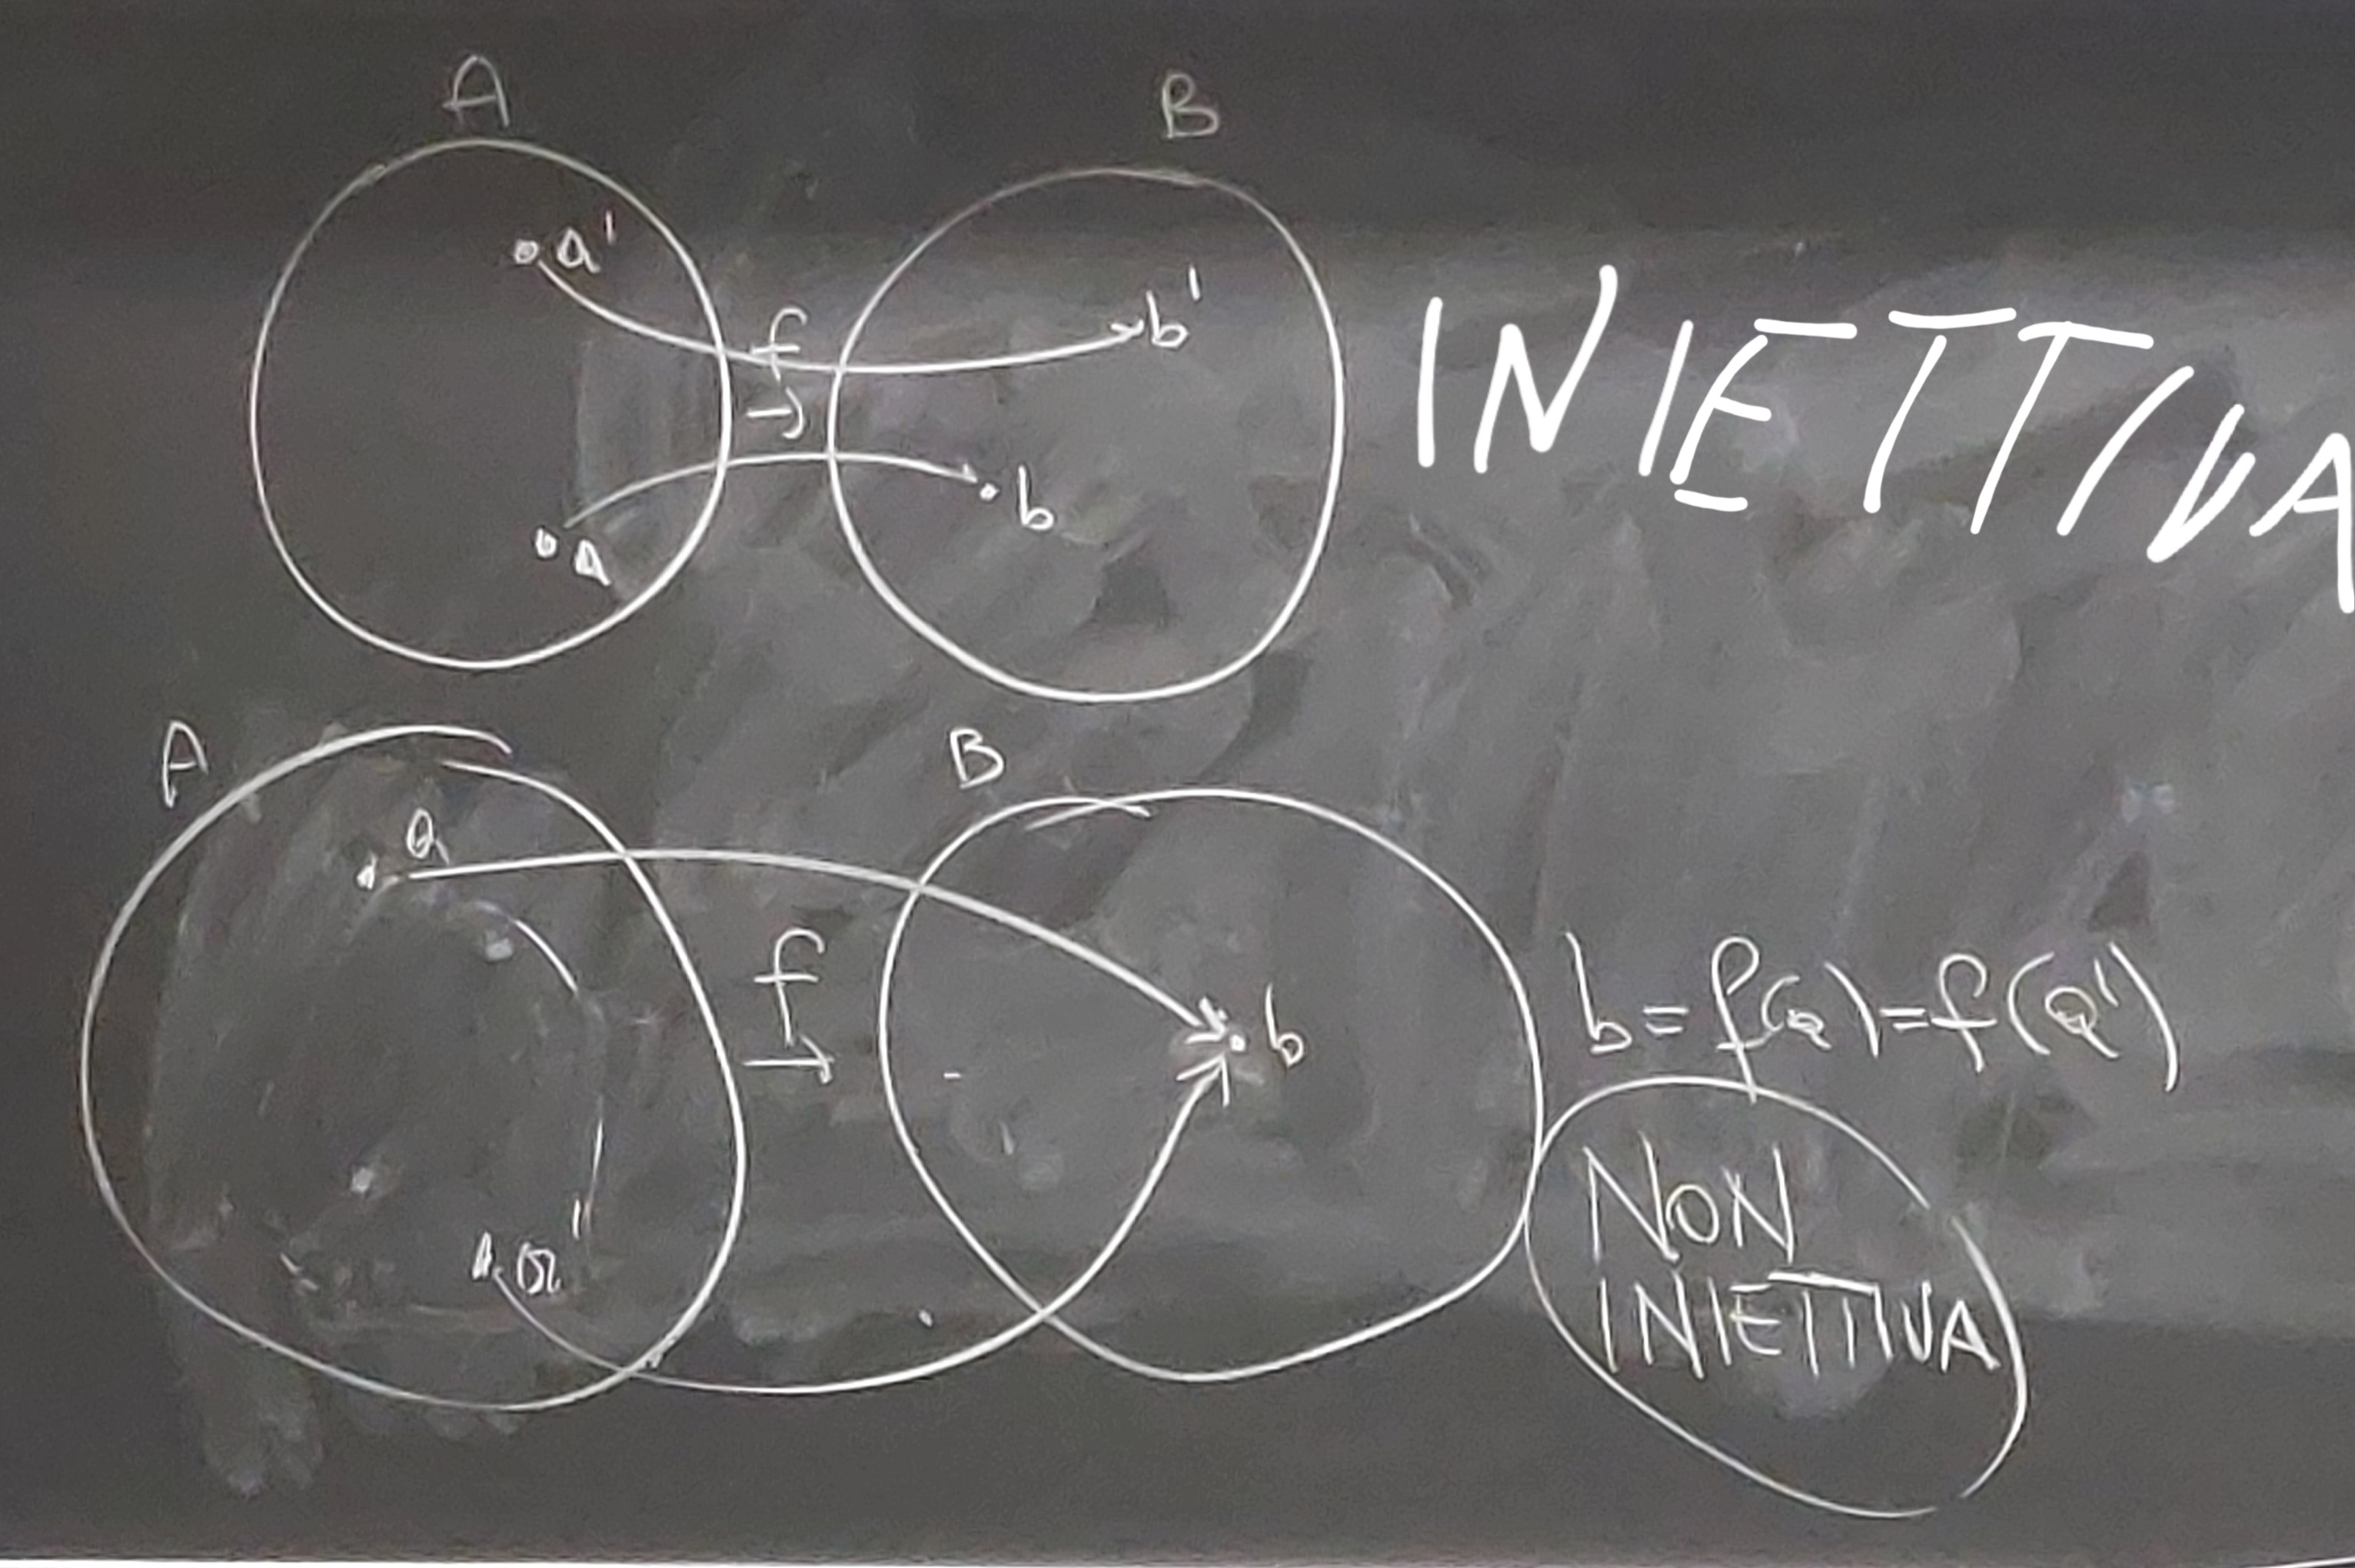 A B
a' f → b' INIETTIVA
a b
A B
a f → b b = f(a) = f(a')
a'' NON
INIETTIVA